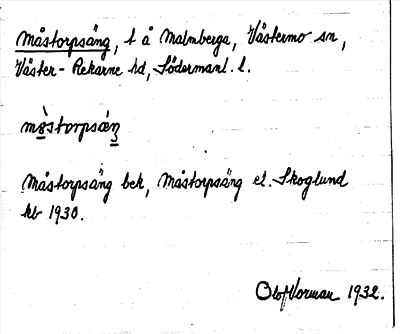 Måstorpsäng, t å Malmberga, Västermo sn,
Väster-Rekarne hd, Södermanl. l.
Måstorpsäng bek, Måstorpsäng el. Skoglund
kb 1930.
Olof Vorman 1932.